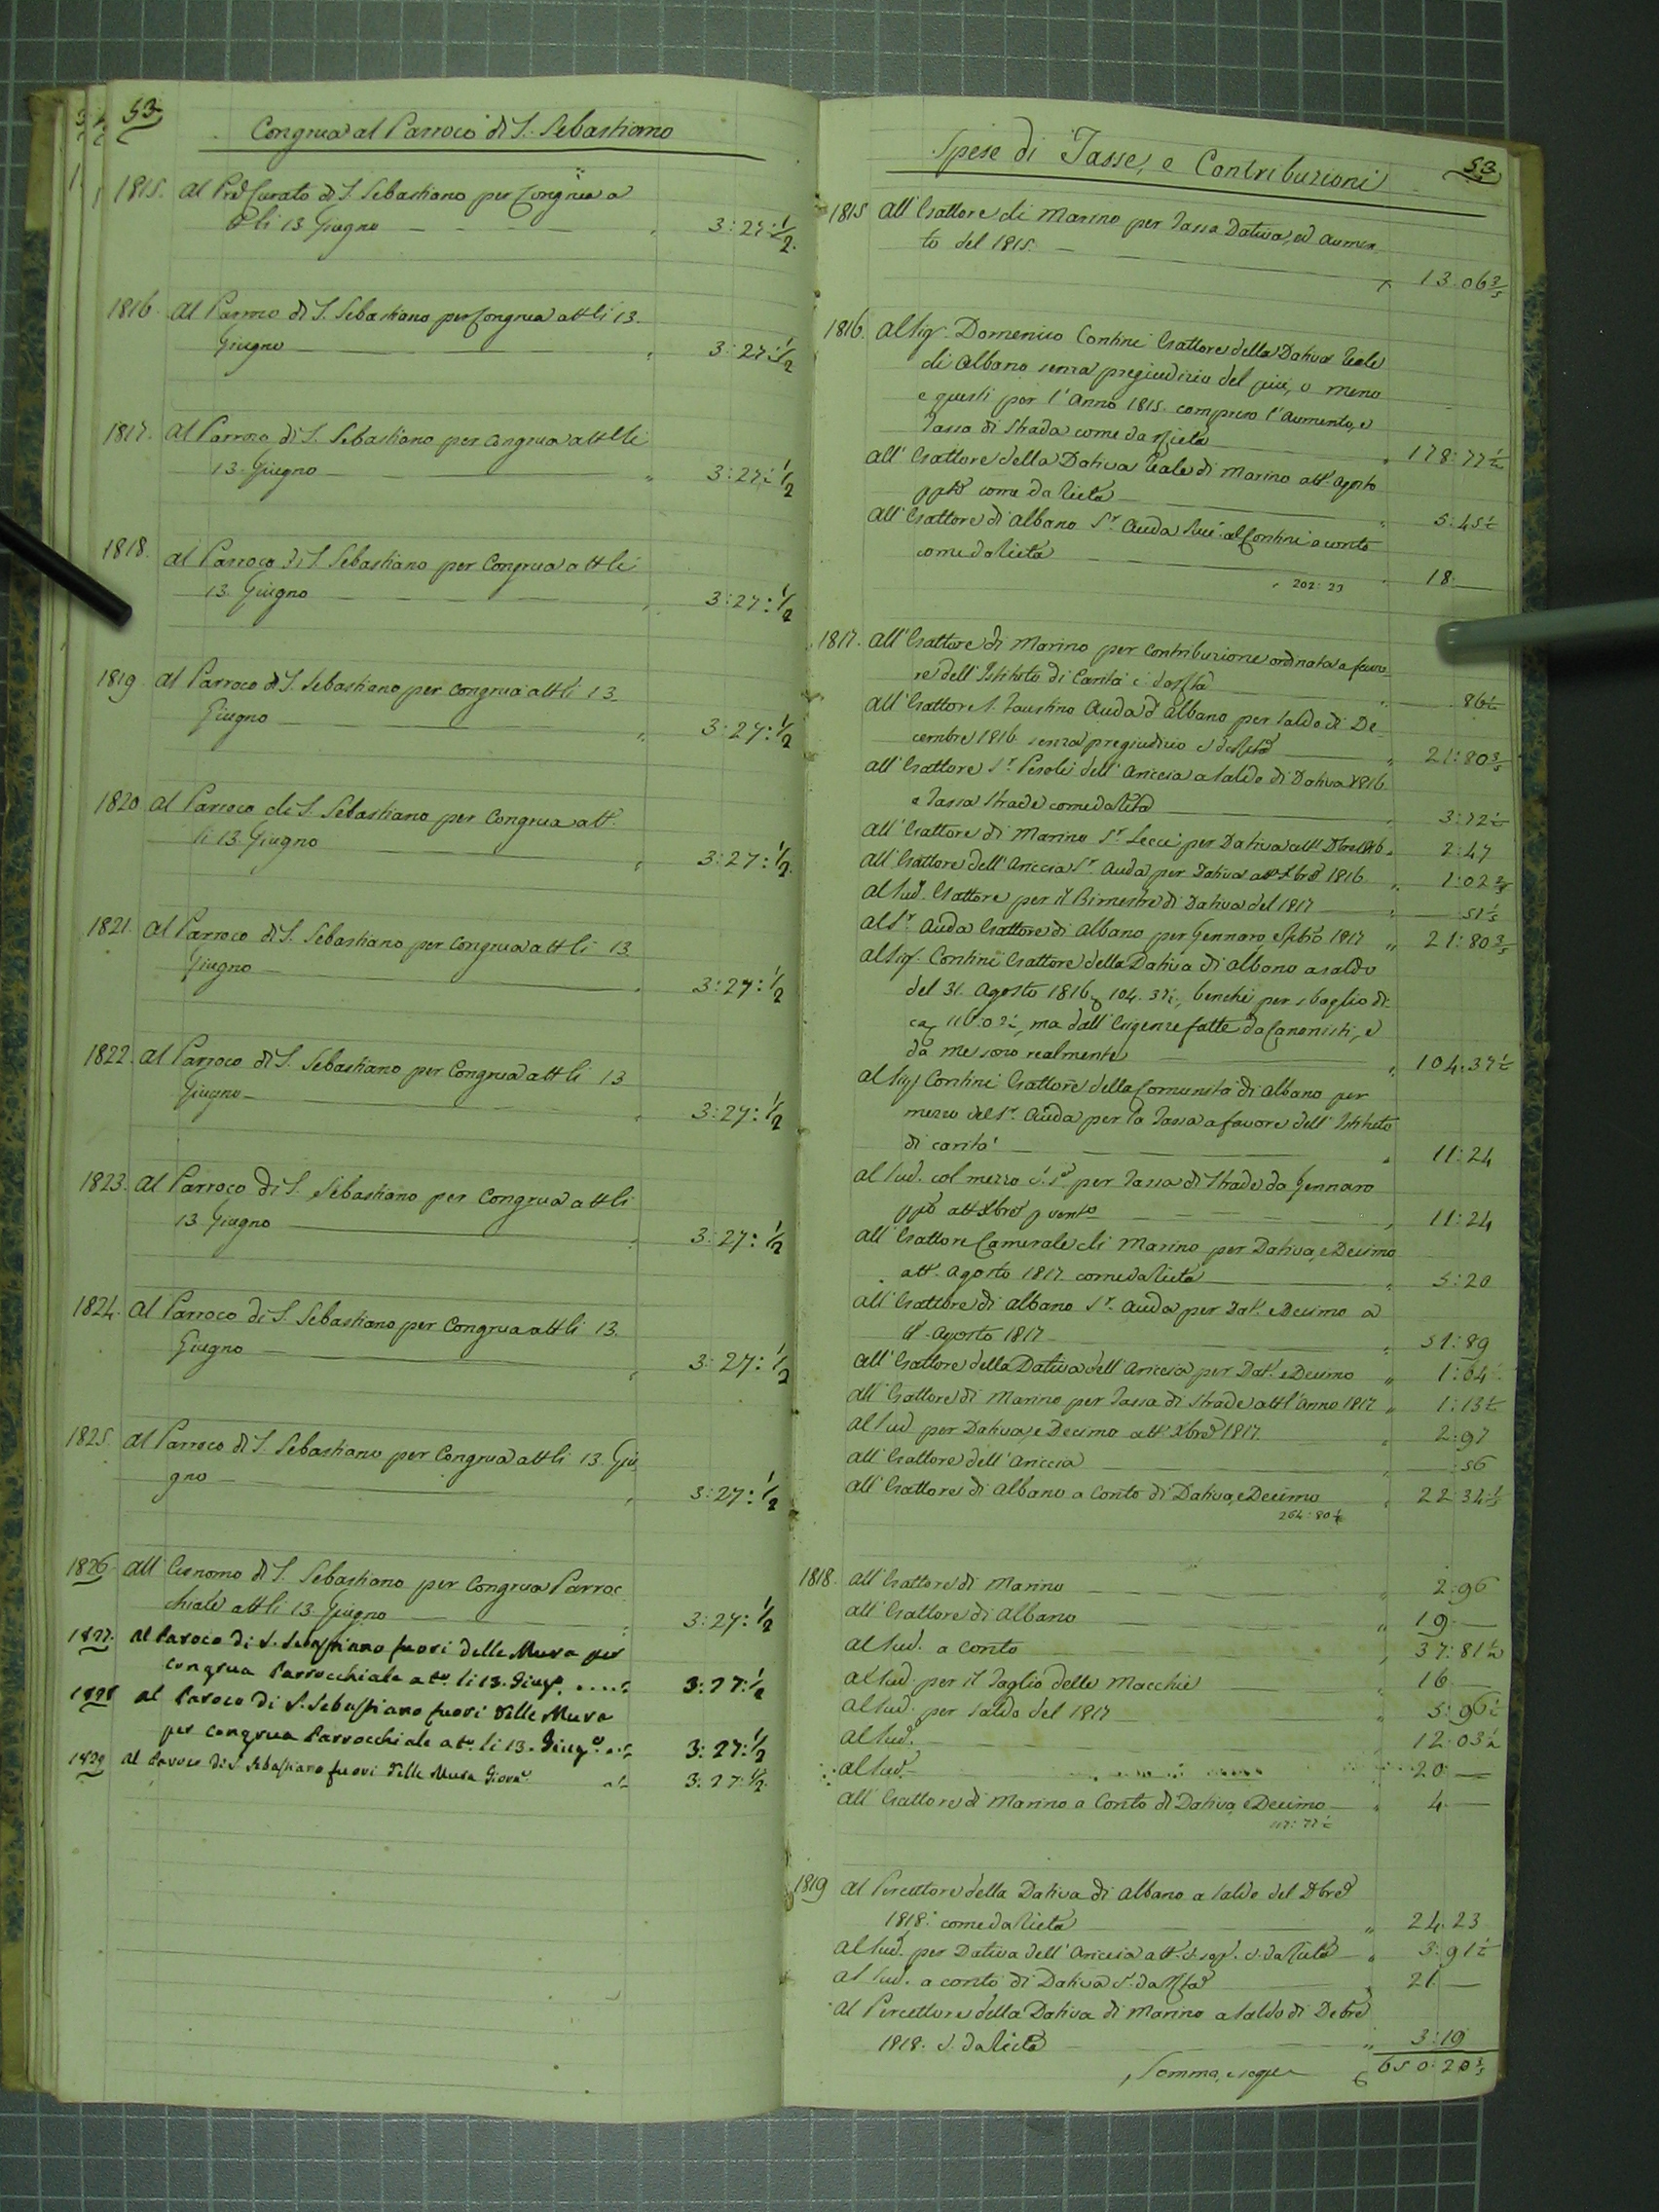 53
Congrua al Parroco di S. Sebastiano
1815. Al Rd Curato di S. Sebastiano per Congrua a
tt li 13 Giugno 3:27:1/2
1816. Al Parroco di S. Sebastiano per Congrua att li 13.
Giugno 3:27:1/2
1817. Al Parroco di S. Sebastiano per congrua att li
13. Giugno 3:27:1/2
1818. Al Parroco di S. Sebastiano per Congrua att li
13. Giugno 3:27:1/2
1819 Al Parroco di S. Sebastiano per Congrua att li 13.
Giugno 3:27:1/2
1820 Al Parroco di S. Sebastiano per Congrua att.
li 13. Giugno 3:27:1/2
1821. Al Parroco di S. Sebastiano per Congrua att li 13.
Giugno 3:27:1/2
1822. Al Parroco di S. Sebastiano per Congrua att li 13
Giugno 3:27:1/2
1823. Al Parroco di S. Sebastiano per Congrua att li
13. Giugno 3:27:1/2
1824. Al Parroco di S. Sebastiano per Congrua att li 13.
Giugno 3:27:1/2
1825 Al Parroco di S. Sebastiano per Congrua att li 13. Giu
gno 3:27:1/2
1826 All' Economo di S. Sebastiano per Congrua Parroc
chiale att li 13. Giugno 3:27:1/2
1827. Al Paroco di S. Sebastiano fuori delle Mura per
congrua Parrocchiale a tt. li 13. Giugo. 3:27:1/2
1828 Al Paroco di S. Sebastiano fuori delle Mura
per congrua Parrocchiale a tt. li 13. Giugo. 3:27:1/2
1829 Al Paroco di S. Sebastiano fuori delle Mura 3:27:1/2
Spese di Tasse, e Contribuzioni 53
1815 All' Esattore di Marino per Tassa Dativa, ed aumen
to del 1815. 13.06 3/5
1816. Al Sig. Domenico Contini Esattore della Dativa Reale
di Albano senza pregiudizio del più, o meno
e questi per l'Anno 1815. compreso l'Aumento, e
Tassa di Strada come da Ricta 178:77 1/2
All' Esattore della Dativa Reale di Marino att. Agosto
ppto come da Ricta 5:45 1/2
All' Esattore di Albano Sr. Auda Suc. al Contini a conto
come da Ricta 18:
202:23
1817. All' Esattore di Marino per contribuzione ordinata a favo
re dell' Istituto di Carità 86 1/2
All' Esattore S. Faustino Auda d' Albano per saldo di De
cembre 1816. senza pregiudizio 21:80 3/5
All' Esattore Sr. dell' Ariccia a saldo di Dativa 1816
e Tassa Strade come da Ricta 3:72 1/2
All' Esattore di Marino Sr. Lecce per Dativa att. Xbre 1816 2:47
All' Esattore dell' Ariccia Sr. Auda per Dativa a tt Xbre 1816. 1:02 2/5
Al Sud. Esattore per il Bimestre di Dativa del 1817 51 1/5
Al Sr. Auda Esattore di Albano per Gennaro, e Febro 1817 21:80 3/5
Al Sig. Contini Esattore della Dativa di Albano a saldo
del 31. Agosto 1816 104.37 1/2, benchè per sbaglio di
ma dall' Esigenze fatte da Canonisti, e
da me sono realmente 104.37 1/2
Al Sig Contini Esattore della Comunità di Albano per
mezzo del Sr. Auda per la Tassa a favore dell' Istituto
di carità 11:24
Al Sud. col mezzo per Tassa di Strade da Gennaro
ppto att Xbre 11:24
All' Esattore Camerale di Marino per Dativa, e Decimo
att. Agosto 1817. come da Ricta 5:20
All' Esattore di Albano Sr. Auda per Dat. e Decimo a
tt. Agosto 1817 51:89
All' Esattore della Dativa dell' Ariccia per Dat. e Decimo 1:04
All' Esattore di Marino per Tassa di Strade att l'Anno 1817 1:13 1/2
Al Sud per Dativa, e Decimo att. Xbre 1817 2:97
All' Esattore dell' Ariccia :56
All' Esattore di Albano a Conto di Dativa, e Decimo 22:34 1/5
264:80 1/2
1818. All' Esattore di Marino 2:96
All' Esattore di Albano 19.
Al Sud. a conto 37:81 1/2
Al Sud per il Taglio delle Macchie 16
Al Sud. per saldo del 1817 5:96 1/2
Al Sud. 12:03 1/2
Al Sud. 20
All' Esattore di Marino a Conto di Dativa, e Decimo 4.
117:77 1/2
1819 Al Percettore della Dativa di Albano a saldo del Xbre
1818. come da Ricta 24.23
Al Sud. per Dativa dell' Ariccia 3:91 1/2
Al Sud. a conto di Dativa 21.
Al Percettore della Dativa di Marino a saldo di Debre
1818. da Ricta 3:19
Somma, e segue 650:20 3/5